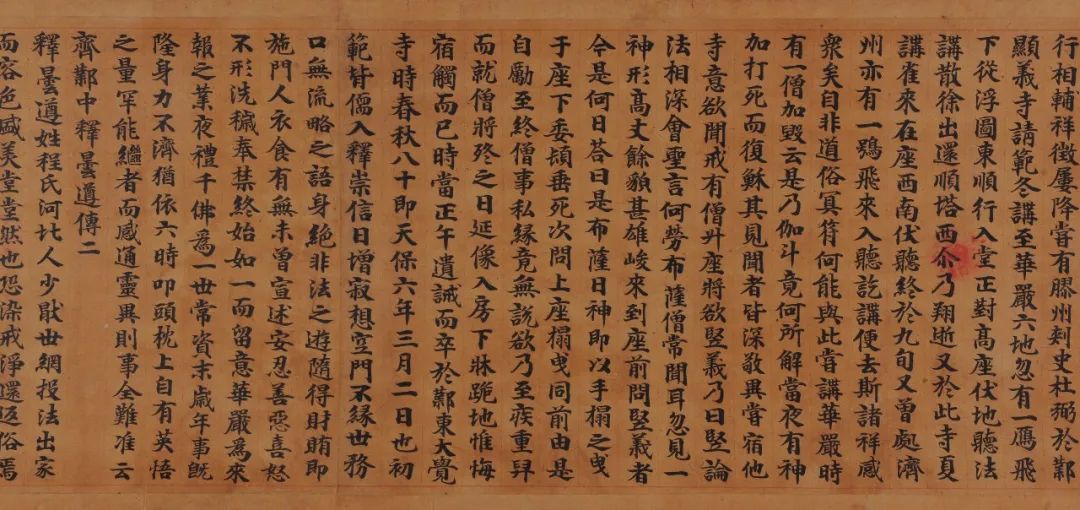 行相輔祥徵屢降嘗有膠州刾史杜弼於鄴
顯義寺請範冬講至華嚴六地忽有一鴈飛
下從浮圖東順行入堂正對高座伏地聽法
講散徐出還順塔西尒乃翔逝又於此寺夏
講雀來在座西南伏聽終於九旬又曽處濟
州亦有一鴞飛來入聽訖講便去斯諸祥感
衆矣自非道俗冥符何能與此嘗講華嚴時
有一僧加毀云是乃伽斗竟何所解當夜有神
加打死而復穌其見聞者皆深敬異嘗宿他
寺意欲聞戒有僧昇座將欲竪義乃曰竪論
法相深會聖言何勞布薩僧常聞耳忽見一
神形高丈餘貌甚雄峻來到座前問竪義者
今是何日荅曰是布薩日神即以手搨之曳
于座下委頓垂死次問上座搨曳同前由是
自勵至終僧事私緣竟無説欲乃至疾重舁
而就僧將終之日延像入房下牀跪地惟悔
宿觸而已時當正午遺誡而卒於鄴東大覺
寺時春秋八十即天保六年三月二日也初
範背儒入釋崇信日增寂想空門不緣世務
口無流略之語身絶非法之遊隨得財賄即
施門人衣食有無未曾宣述安忍善惡喜怒
不形洗穢奉禁終始如一而留意華嚴爲來
報之業夜禮千佛爲一世常資末歲年事旣
隆身力不濟猶依六時叩頭枕上自有英悟
之量罕能繼者而感通靈異則事全難准云
齊鄴中釋曇遵傳二
釋曇遵姓程氏河北人少猒世網投法出家
而容色盛美堂堂然也恐染戒淨還返俗焉